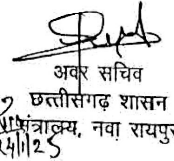 अवर सचिव
छत्तीसगढ़ शासन
मंत्रालय, नवा रायपुर